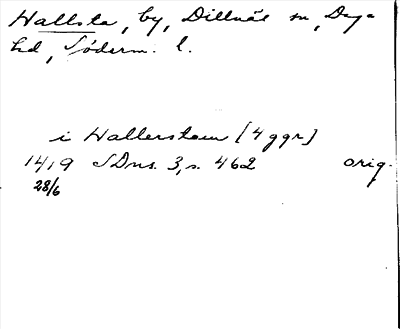 Hallsta, by, Dillnäs sn, Daga
hd, Söderm. l.
i Hallerstom [4 ggr]
1419 SDns. 3, s. 462 orig.
28/6